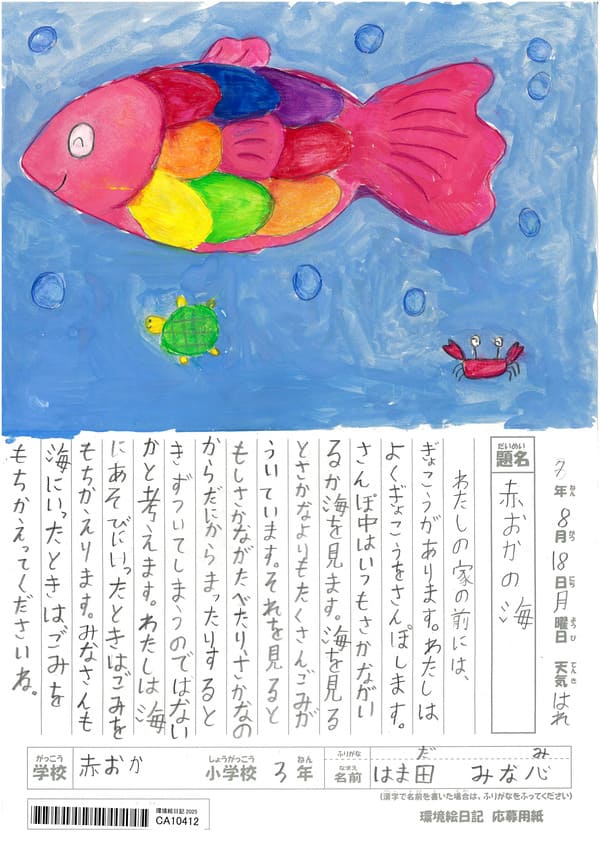 7年8月18日月曜日 天気はれ
だいめい
題名
赤おかの海
わたしの家の前には、
ぎょこうがあります。わたしは
よくぎょこうをさんぽします。
さんぽ中はいつもさかながい
るか海を見ます。海を見る
とさかなよりもたくさんごみが
ういています。それを見ると
もしさかながたべたり、さかなの
からだにからまったりすると
きずついてしまうのではない
かと考えます。わたしは海
にあそびにいったときはごみを
もちかえります。みなさんも
海にいったときはごみを
もちかえってくださいね。
がっこう しょうがっこう ねん ふりがな だ み
学校 赤おか 小学校 3年 なまえ 名前 はま田 みな心
(漢字で名前を書いた場合は、ふりがなをふってください)
環境絵日記 2025
CA10412
環境絵日記 応募用紙